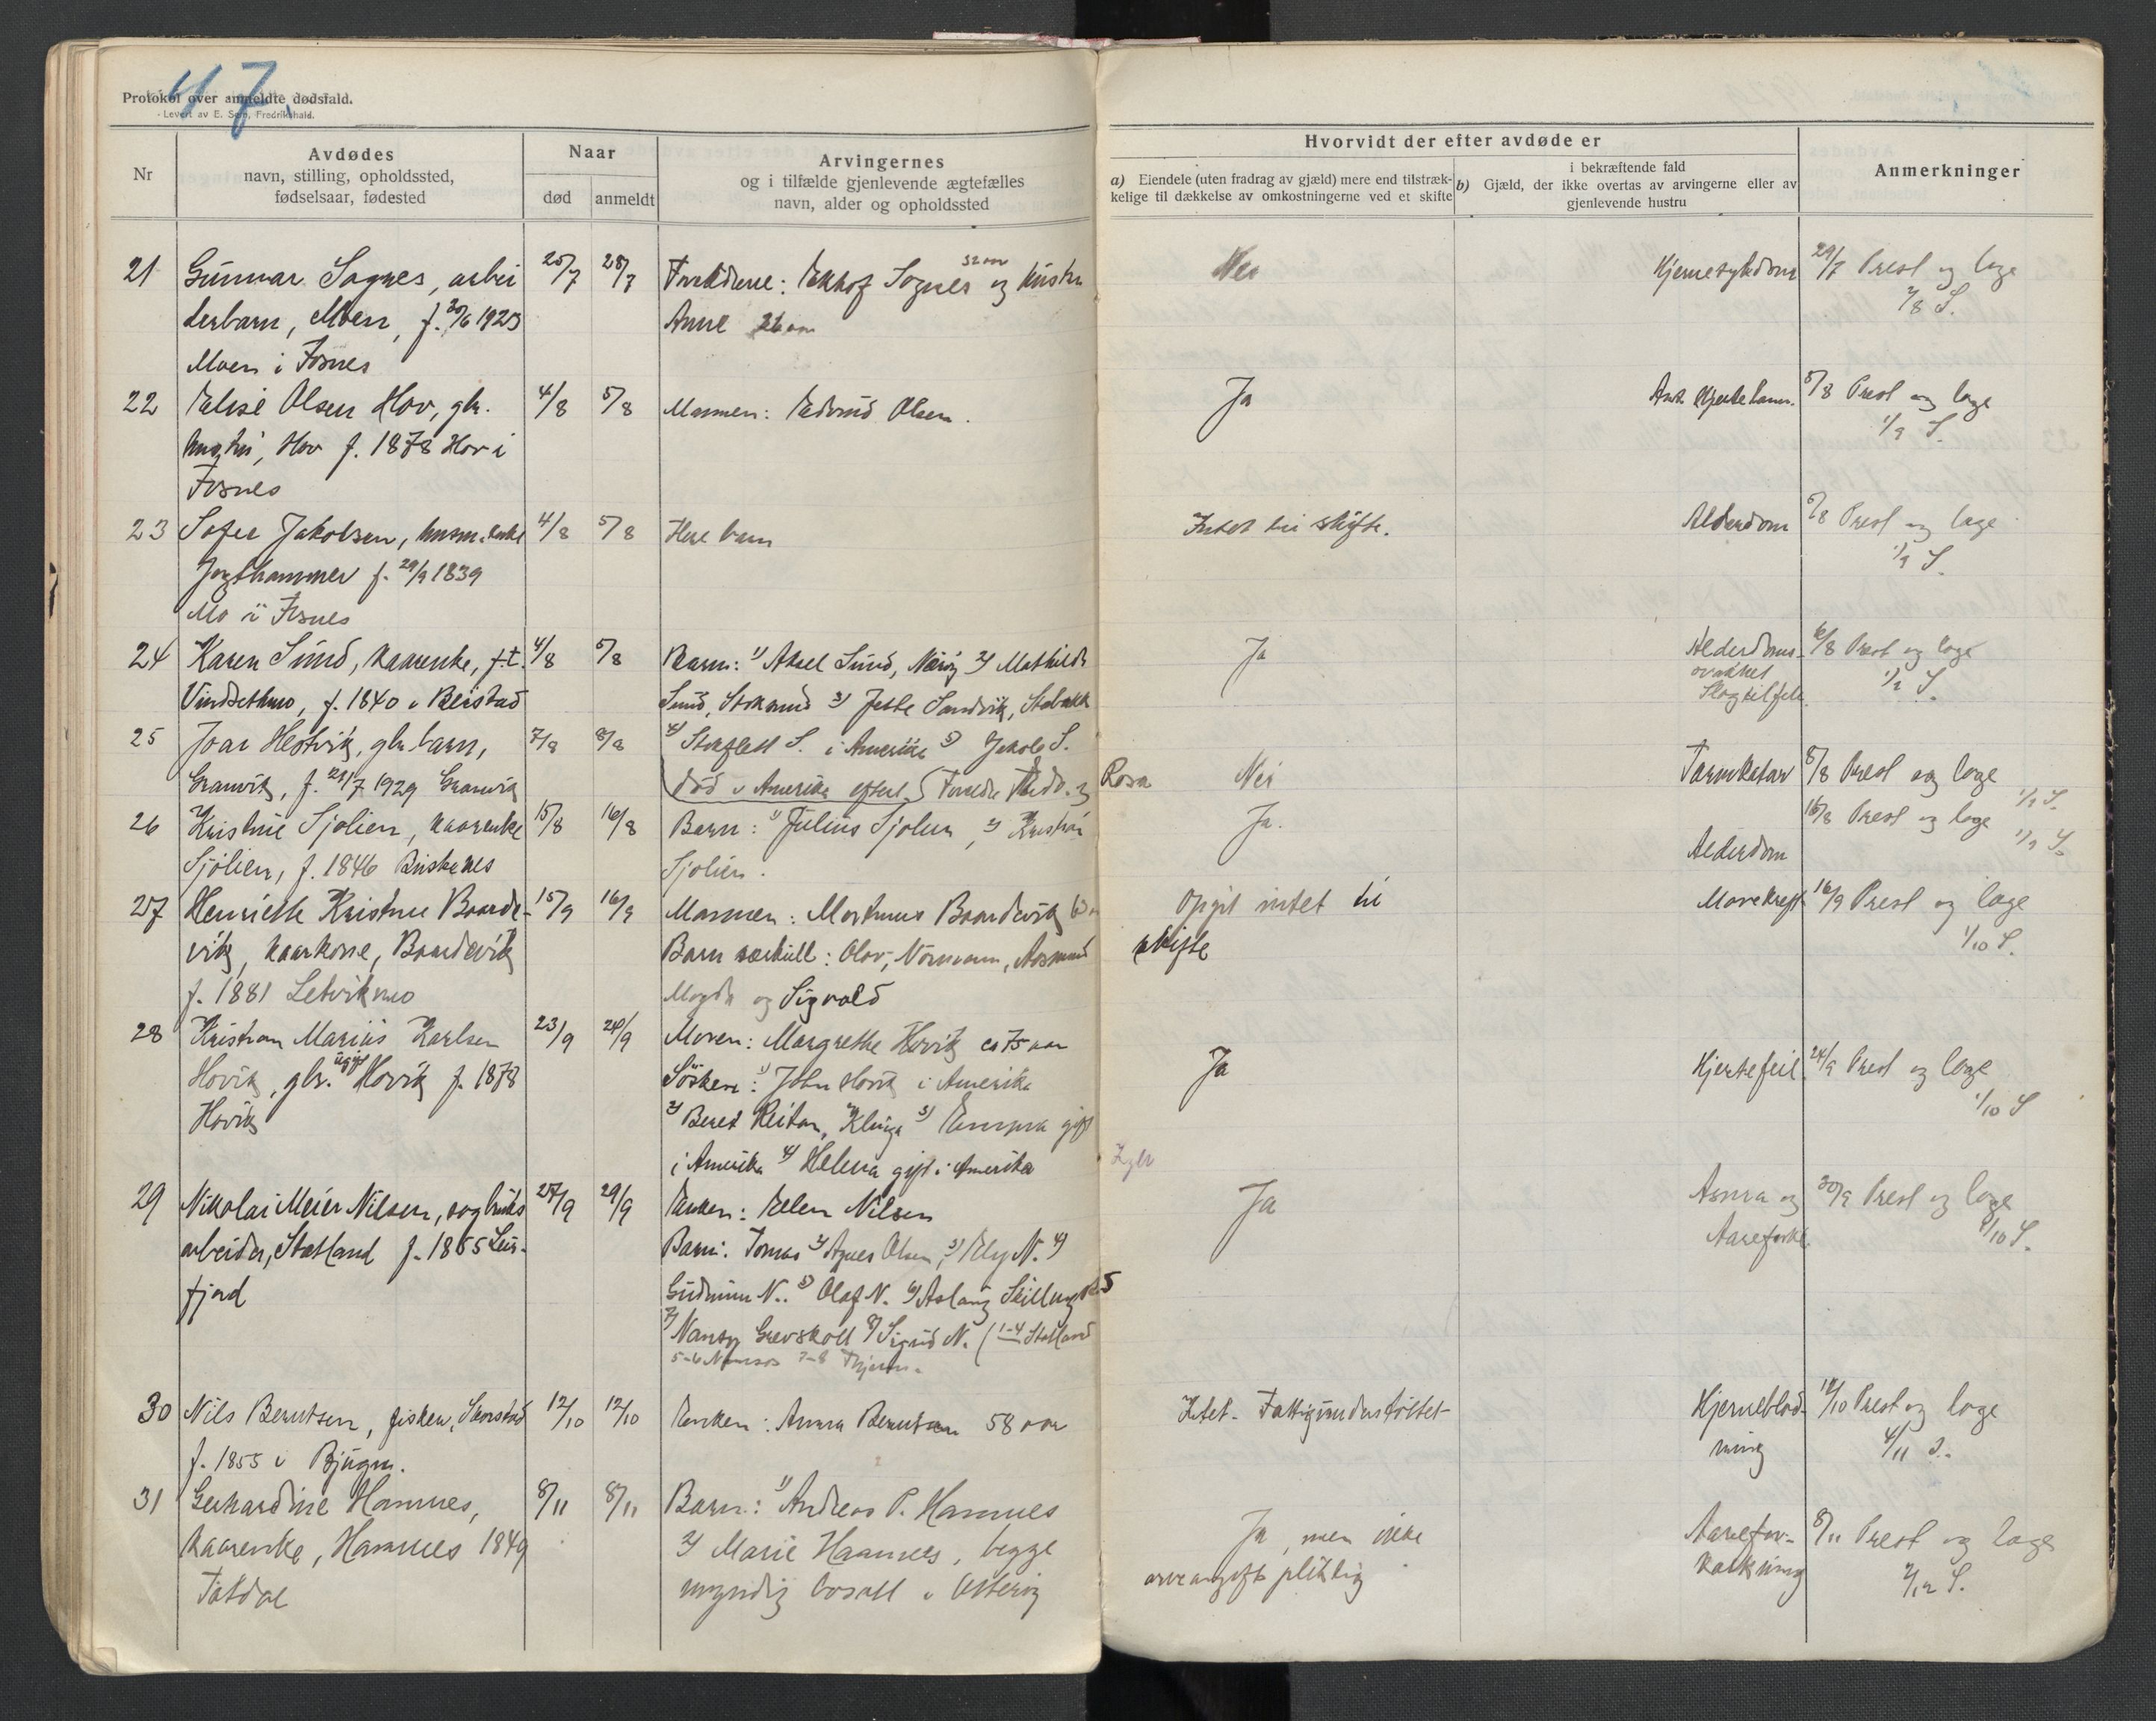 47.
Protokol over anmeldte dødsfald.
Levert av E. Sem, Fredrikshald.
Nr
Avdødes
navn, stilling, opholdssted,
fødselsaar, fødested
Naar
død
anmeldt
Arvingernes
og i tilfælde gjenlevende ægtefælles
navn, alder og opholdssted
Hvorvidt der efter avdøde er
a) Eiendele (uten fradrag av gjæld) mere end tilstræk-
kelige til dækkelse av omkostningerne ved et skifte
i bekræftende fald
b) Gjæld, der ikke overtas av arvingerne eller av
gjenlevende hustru
Anmerkninger
21 Gunnar Sagnes, arbei 25/7 28/7 Forældrene: Sognes 32 aar og hustru Nei Hjernesykdom 29/7 Prest og læge
derbarn, Moen, f. 30/6 1923 Anne 26 aar 2/8 S.
Moen i Fosnes
22 Elise Olsen Hov, gbr. 4/8 5/8 Mannen: Edvard Olsen. Ja 5/8 Prest og læge
hustru, Hov f. 1878 Hov i 1/9 S.
Fosnes
23 Sofie Jakobsen, husm.enke 4/8 5/8 Flere barn Intet til skifte. Alderdom 5/8 Prest og læge
Jøgthammer f. 29/9 1839 1/9 S.
Mo i Fosnes
24 Karen Sund, kaarenke, f.t. 4/8 5/8 Barn: 1) Aksel Sund, Nærøy 2) Mathilde Ja Alderdoms- 6/8 Prest og læge
Vindsetmo, f. 1840 i Beistad Sund, Stoksund 3) Jette Sandvik, Stabækk slagtilfelle. 1/9 S.
25 Joar Hestvik, gbr. barn, 7/8 8/8 4) Stoflett S. i Amerika 5) Jakob S.
Granvik, f. 21/7 1929 Granvik død i Amerika Forældre Edv. og Rosa Nei Tarmkatar 8/8 Prest og læge 1/9 S.
26 Kristine Sjølien, kaarenke 15/8 16/8 Barn: 1) Julius Sjølien, 2) Kristian Ja. Alderdom 16/8 Prest og læge 1/9 S.
Sjølien, f. 1846 Binskenes Sjølien.
27 Henriette Kristine Baarde- 15/9 16/9 Mannen: Mortinus Baardvik Opgit intet til Mavekreft 16/9 Prest og læge
vik, kaarkone, Baardvik Barn særkull: Olav, Normann, Aasmund skifte 1/10 S.
f. 1881 Setvikmo Magda og Sigvald
28 Kristian Marius Karlsen 23/9 24/9 Moren: Margrethe Hovik ca 75 aar
Hovik, gbr. ugift Hovik f. 1878 Søsken: 1) John Hovik i Amerika Ja Hjertefeil. 24/9 Prest og læge
Hovik 2) Beret Reitan, Klinga 3) gift 1/10 S
i Amerika 4) Helena gift i Amerika
29 Nikolai Meier Nilsen, sagbruks 27/9 29/9 Enken: Elen Nilsen Ja Astma og 30/9 Prest og læge
arbeider, Statland f. 1865 Leir- Barn: Tomas 2) Agnes Olsen, 3) Elly N. 4) Aareforkl. 8/10 S.
fjord Gudrun N.. 5) Olaf N. 6) Aslaug
7) Nancy Grevskott 8) Sigrid N. (1-4 Statland
5-6 Namsos 7-8
30 Nils Berntsen, fisker, Skorstad 12/10 12/10 Enken: Anna Berntsen 58 aar Intet - Fattigunderstøttet Hjerneblød- 12/10 Prest og læge
f. 1855 i Bjugn. ning 4/11 S.
31 Gerhardine Hamnes, 8/11 8/11 Barn: 1) Andreas P. Hamnes Ja, men ikke Aarefor- 8/11 Prest og læge
kaarenke, Hamnes 1849 2) Marie Hamnes, begge arveavgift pliktig kalkning 2/12 S.
Tøtdal myndig bosatt i Otterøy